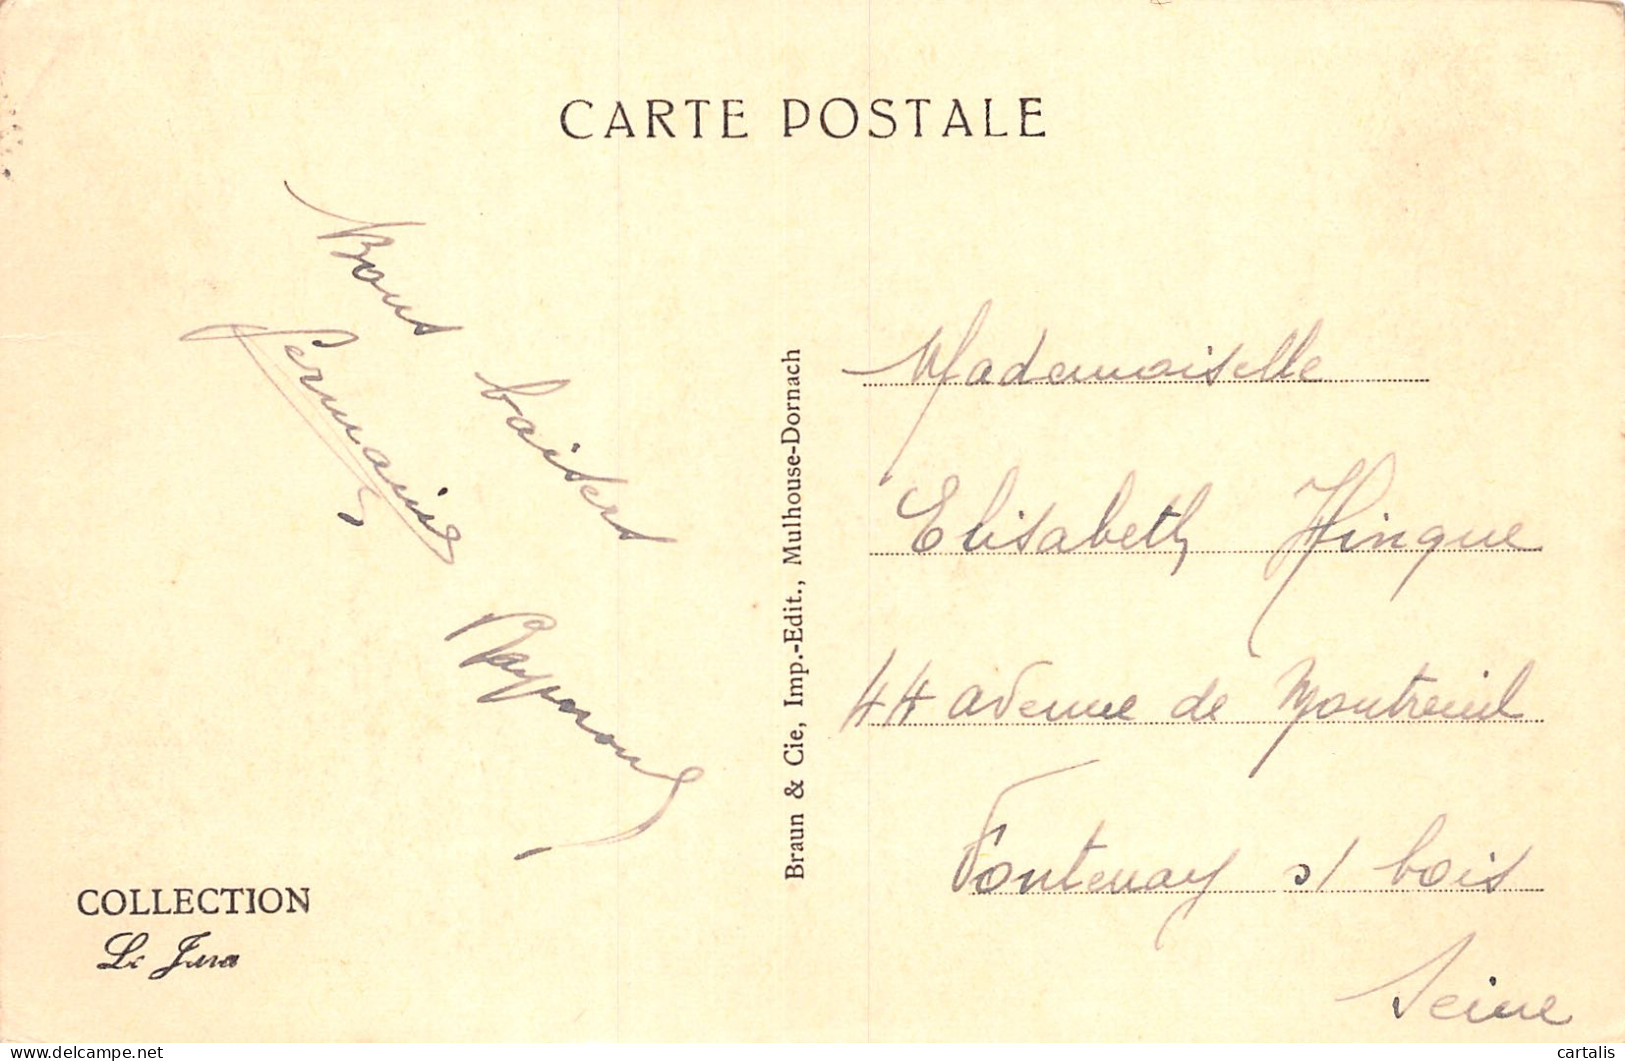 CARTE POSTALE
Bons baisers
Germaine
Raymond
Braun & Cie, Imp.-Edit., Mulhouse-Dornach
Mademoiselle
Elisabeth Hinque
44 avenue de Montreuil
Fontenay s/ bois
Seine
COLLECTION
Le Jura
delcampe.net
cartalis